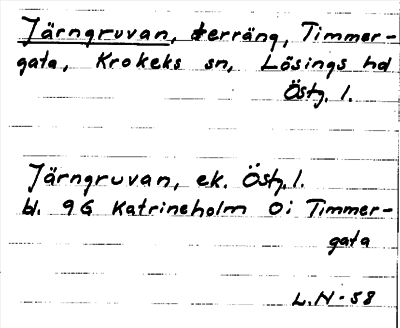 Järngruvan, terräng, Timmer-
gata, Krokeks sn, Lösings hd
Östg. l.
Järngruvan, ek. Östg. l.
bl. 9G Katrineholm Ö i Timmer-
gata
L.N-58